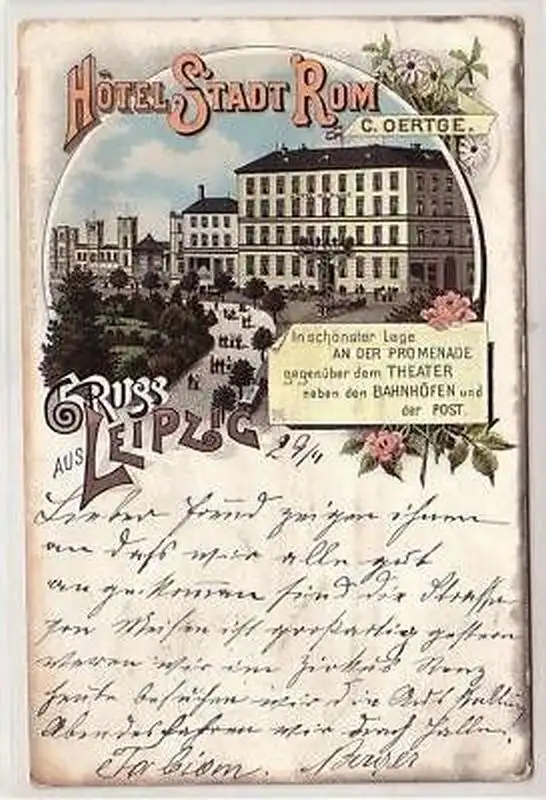 HÔTEL STADT ROM
C. OERTGE.
In schönster Lage
AN DER PROMENADE
gegenüber dem THEATER
neben den BAHNHÖFEN und
der POST.
GRUSS
AUS LEIPZIG
29/4
Lieber Freund zeigen ihnen
an das wir alle gut
an gekommen sind die Strasse
von Meisen ist großartig gestern
waren wir im Zirkus Renz
heute besuchen wir die Ausstellung
Abends fahren wir nach Halle.